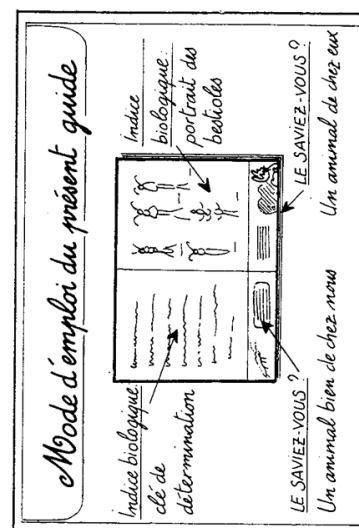 Mode d'emploi du présent guide
Indice biologique :
clé de
détermination
Indice
biologique :
portrait des
bestioles
LE SAVIEZ-VOUS ?
Un animal bien de chez nous
LE SAVIEZ-VOUS ?
Un animal de chez eux